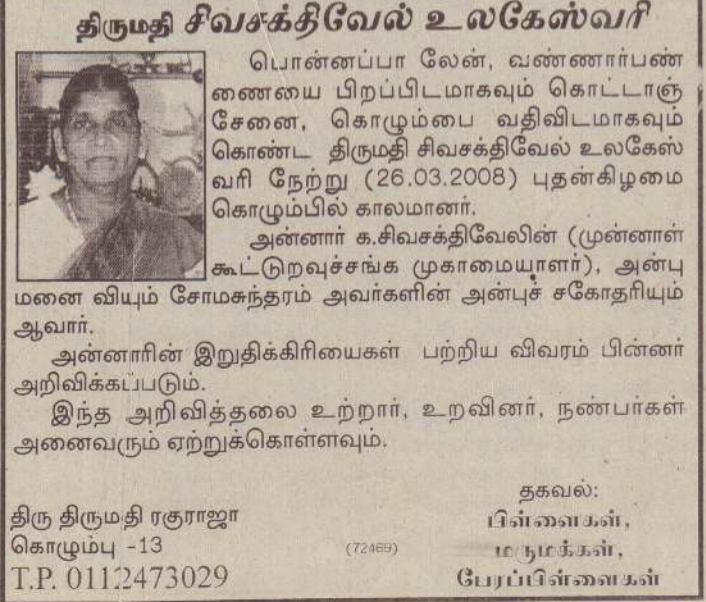 திருமதி சிவசக்திவேல் உலகேஸ்வரி
பொன்னப்பா லேன், வண்ணார்பண்
ணையை பிறப்பிடமாகவும் கொட்டாஞ்
சேனை, கொழும்பை வதிவிடமாகவும்
கொண்ட திருமதி சிவசக்திவேல் உலகேஸ்
வரி நேற்று (26.03.2008) புதன்கிழமை
கொழும்பில் காலமானார்.
அன்னார் க.சிவசக்திவேலின் (முன்னாள்
கூட்டுறவுச்சங்க முகாமையாளர்), அன்பு
மனை வியும் சோமசுந்தரம் அவர்களின் அன்புச் சகோதரியும்
ஆவார்.
அன்னாரின் இறுதிக்கிரியைகள் பற்றிய விவரம் பின்னர்
அறிவிக்கப்படும்.
இந்த அறிவித்தலை உற்றார், உறவினர், நண்பர்கள்
அனைவரும் ஏற்றுக்கொள்ளவும்.
தகவல்:
பிள்ளைகள்,
மருமக்கள்,
பேரப்பிள்ளைகள்
திரு திருமதி ரகுராஜா
கொழும்பு -13
T.P. 0112473029
(72469)